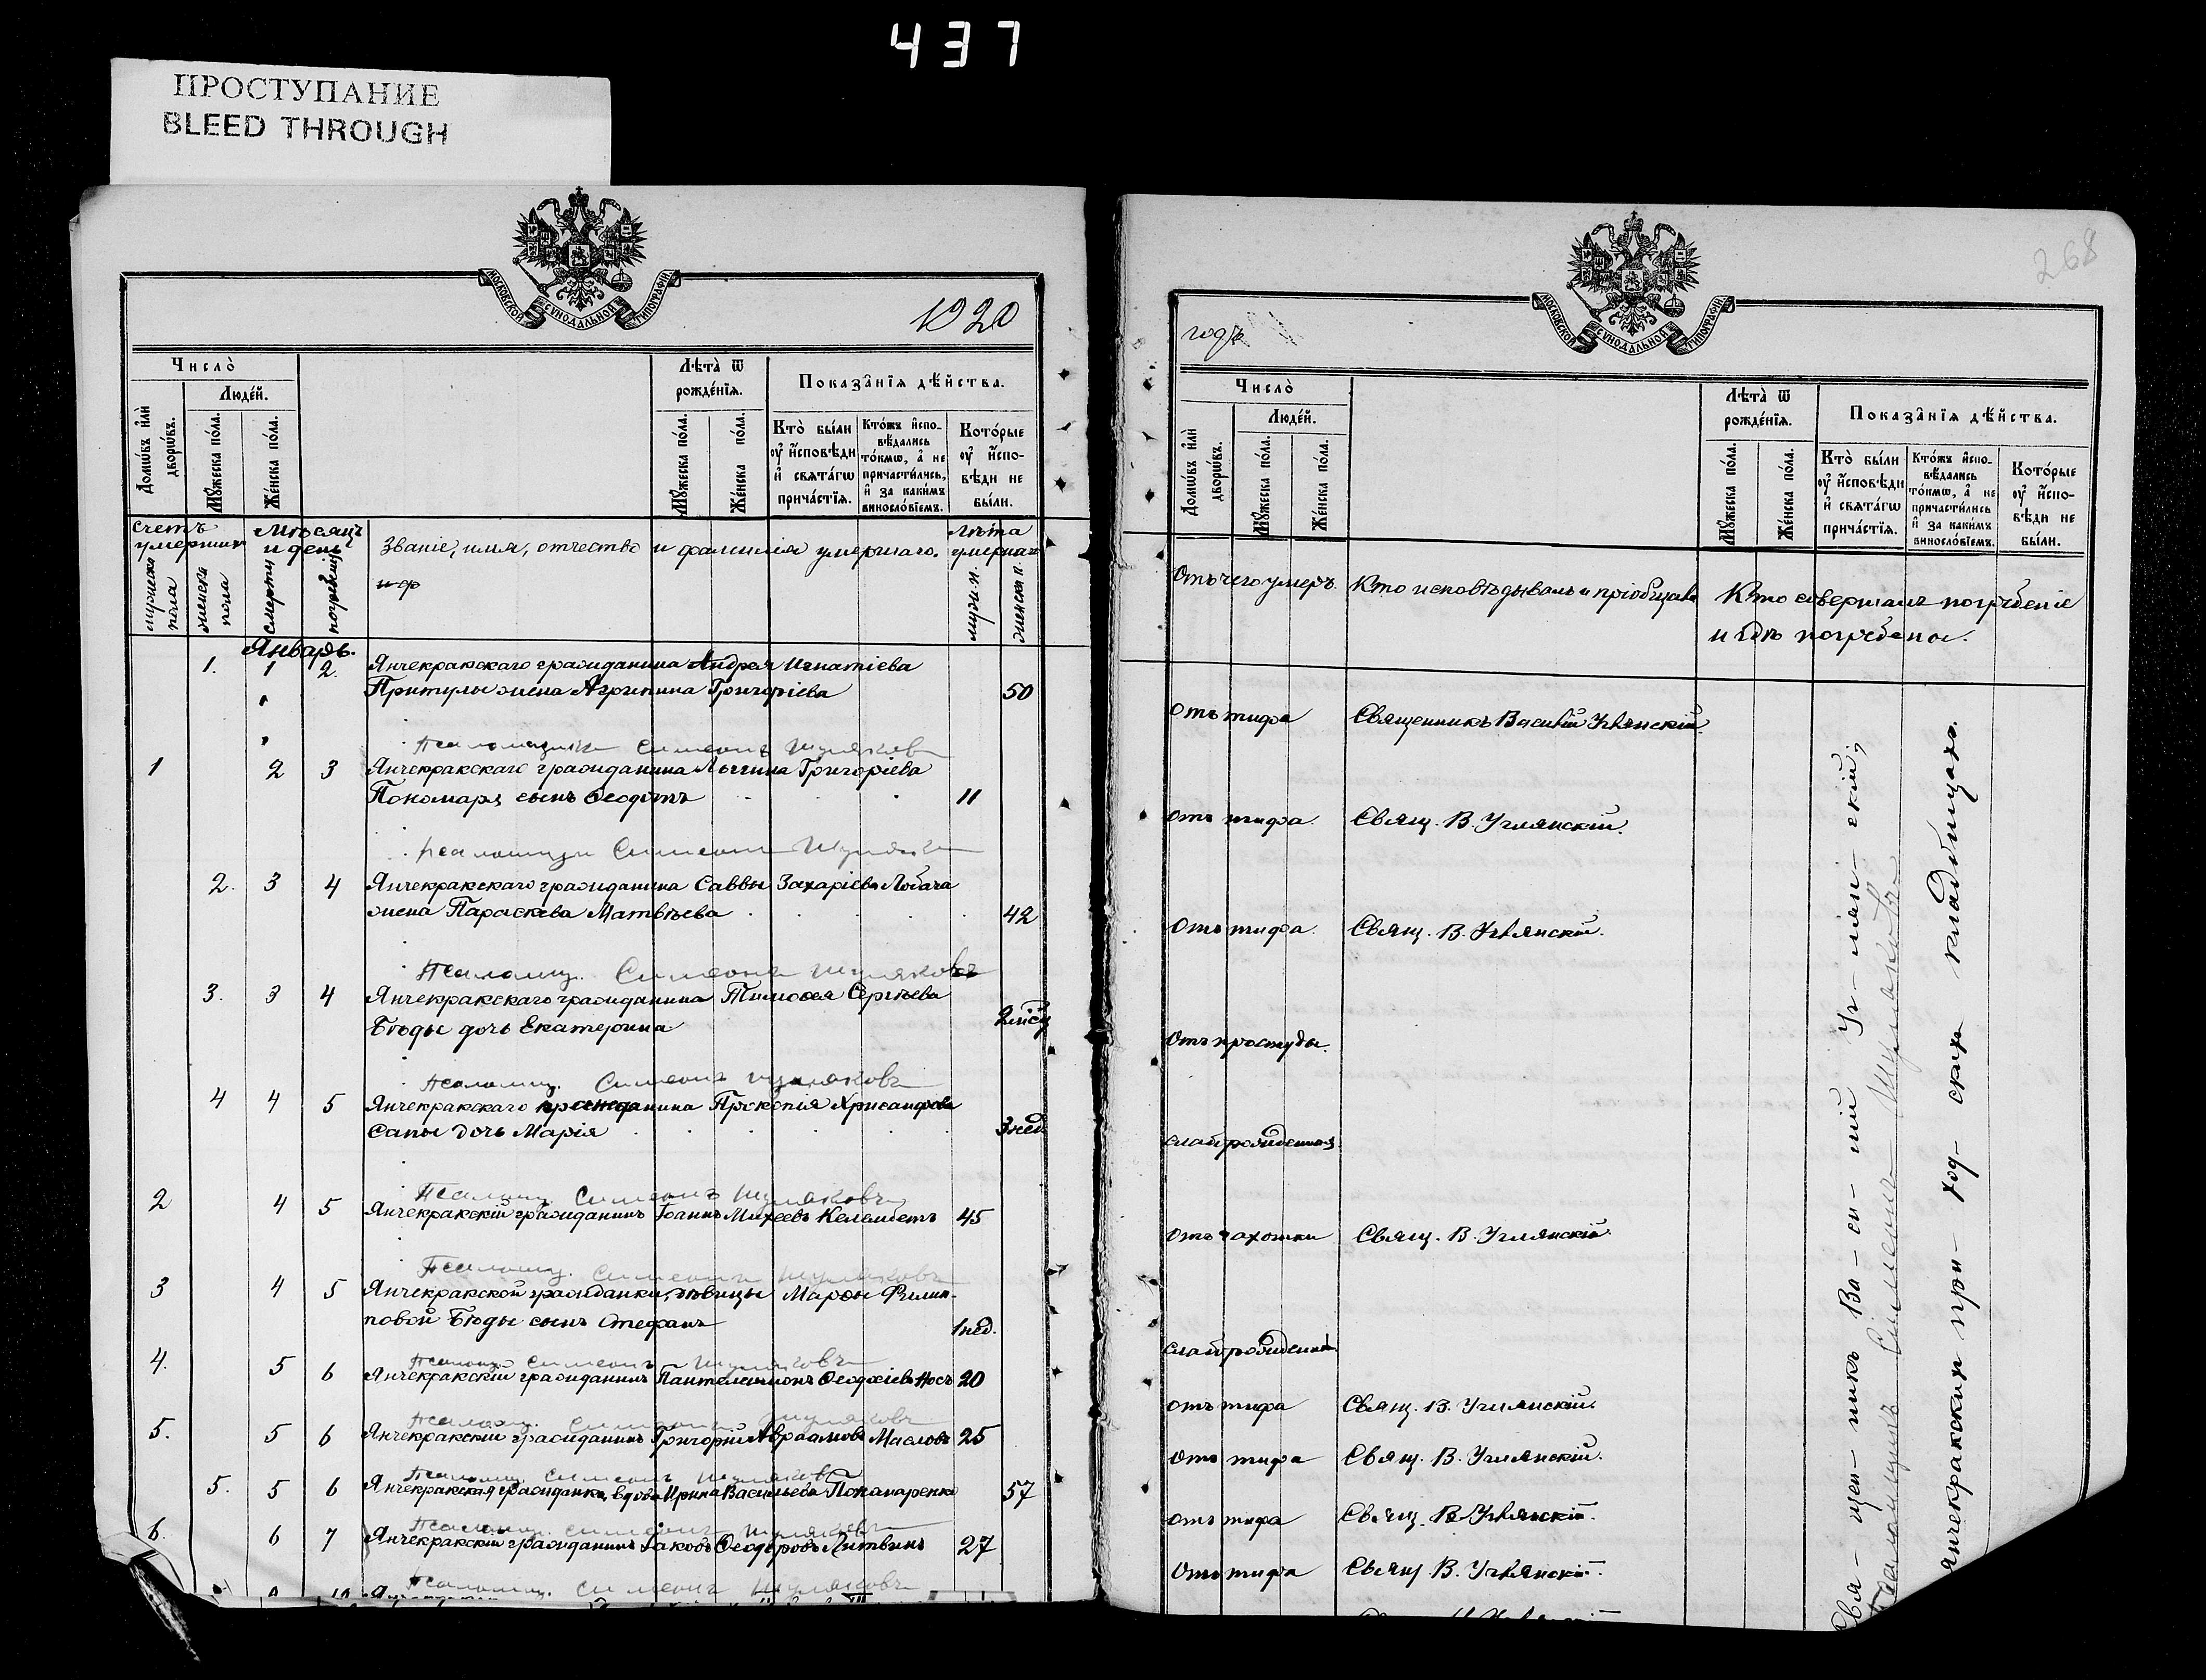 437
ПРОСТУПАНИЕ
BLEED THROUGH
МОСКОВСКОЙ СУНОДАЛЬНОЙ ТИПОГРАФІИ
1920
Число̀
Люде́й.
Домѡ́въ и҆лѝ дворѡ́въ.
Мꙋ́жеска по́ла.
Же́нска по́ла.
Лѣ́та ѿ рожде́нїѧ.
Мꙋ́жеска по́ла.
Же́нска по́ла.
Показа̑нїѧ дѣ́йства.
Кто̀ бы́ли
ᲂу҆ и҆́сповѣди
и҆ свѧта́гѡ
прича́стїѧ.
Кто́жъ и҆спо-
вѣ́дались
то́кмѡ, а҆ не
причасти́лись,
и҆ за каки́мъ
винословїемъ.
Кото́рые
ᲂу҆ и҆́спо-
вѣди не
бы́ли.
Счетъ умершихъ
мужска пола
женска пола
Мѣсяцъ и день
смерти
погребенія
Званіе, имя, отчество и фамилія умершаго.
и ф
Лѣта умершаго
муж. п.
женска п.
Январь.
1. 1 2. Янчекракскаго гражданина Андрея Игнатіева
Притулы жена Агрипина Григоріева 50
Псаломщикъ Симеонъ Шумяковъ
1 2 3 Янчекракскаго гражданина Логгина Григоріева
Пономаря сынъ Ѳеодотъ 11
Псаломщ. Симеонъ Шумяковъ
2. 3 4 Янчекракскаго гражданина Саввы Захаріева Лобача
жена Параскева Матвѣева 42
Псаломщ. Симеонъ Шумяковъ
3. 3 4 Янчекракскаго гражданина Тимоѳея Сергѣева
Бѣды дочь Екатерина 2 мѣсц
Псаломщ. Симеонъ Шумяковъ
4 4 5 Янчекракскаго гражданина Прокопія Хрисанфова
Сапы дочь Марія 3 нед
Псаломщ. Симеонъ Шумяковъ
2 4 5 Янчекракскій гражданинъ Іоаннъ Михеевъ Келембетъ 45
Псаломщ. Симеонъ Шумяковъ
3 4 5 Янчекракской гражданки, дѣвицы Марѳы Филип-
повой Бѣды сынъ Стефанъ 1 нед.
Псаломщ. Симеонъ Шумяковъ
4. 5 6 Янчекракскій гражданинъ Пантелеимонъ Ѳеодосіевъ Носъ 20
Псаломщ. Симеонъ Шумяковъ
5. 5 6 Янчекракскій гражданинъ Григорій Авраамовъ Масловъ 25
Псаломщ. Симеонъ Шумяковъ
5. 5 6 Янчекракская гражданка, вдова Ирина Васильева 57
Псаломщ. Симеонъ Шумяковъ
6. 6 7 Янчекракскій гражданинъ Іаковъ Ѳеодоровъ Литвинъ 27
Псаломщ. Симеонъ Шумяковъ
268
МОСКОВСКОЙ СУНОДАЛЬНОЙ ТИПОГРАФІИ
годъ
Число̀
Люде́й.
Домѡ́въ и҆лѝ дворѡ́въ.
Мꙋ́жеска по́ла.
Же́нска по́ла.
Лѣ́та ѿ рожде́нїѧ.
Мꙋ́жеска по́ла.
Же́нска по́ла.
Показа̑нїѧ дѣ́йства.
Кто̀ бы́ли
ᲂу҆ и҆́сповѣди
и҆ свѧта́гѡ
прича́стїѧ.
Кто́жъ и҆спо-
вѣ́дались
то́кмѡ, а҆ не
причасти́лись
и҆ за каки́мъ
винословїемъ.
Кото́рые
ᲂу҆ и҆́спо-
вѣди не
бы́ли.
Отъ чего умеръ. Кто исповѣдывалъ и пріобщалъ Кто совершалъ погребеніе
и гдѣ погребены.
Отъ тифа Священникъ Василій Углянскій.
Отъ тифа. Свящ. В. Углянскій.
Отъ тифа. Свящ. В. Углянскій.
Отъ простуды.
слаборожденная
Отъ чахотки Свящ. В. Углянскій.
слаборожденный
отъ тифа Свящ. В. Углянскій.
Отъ тифа Свящ. В. Углянскій.
отъ тифа Свящ. В. Углянскій
Отъ тифа Свящ. В. Углянскій.
Свя - щен - никъ Ва - си - лій Уг - лян - скій;
Псаломщикъ Симеонъ Шумяковъ
Янчекракскихъ при - ход - скихъ кладбищахъ.